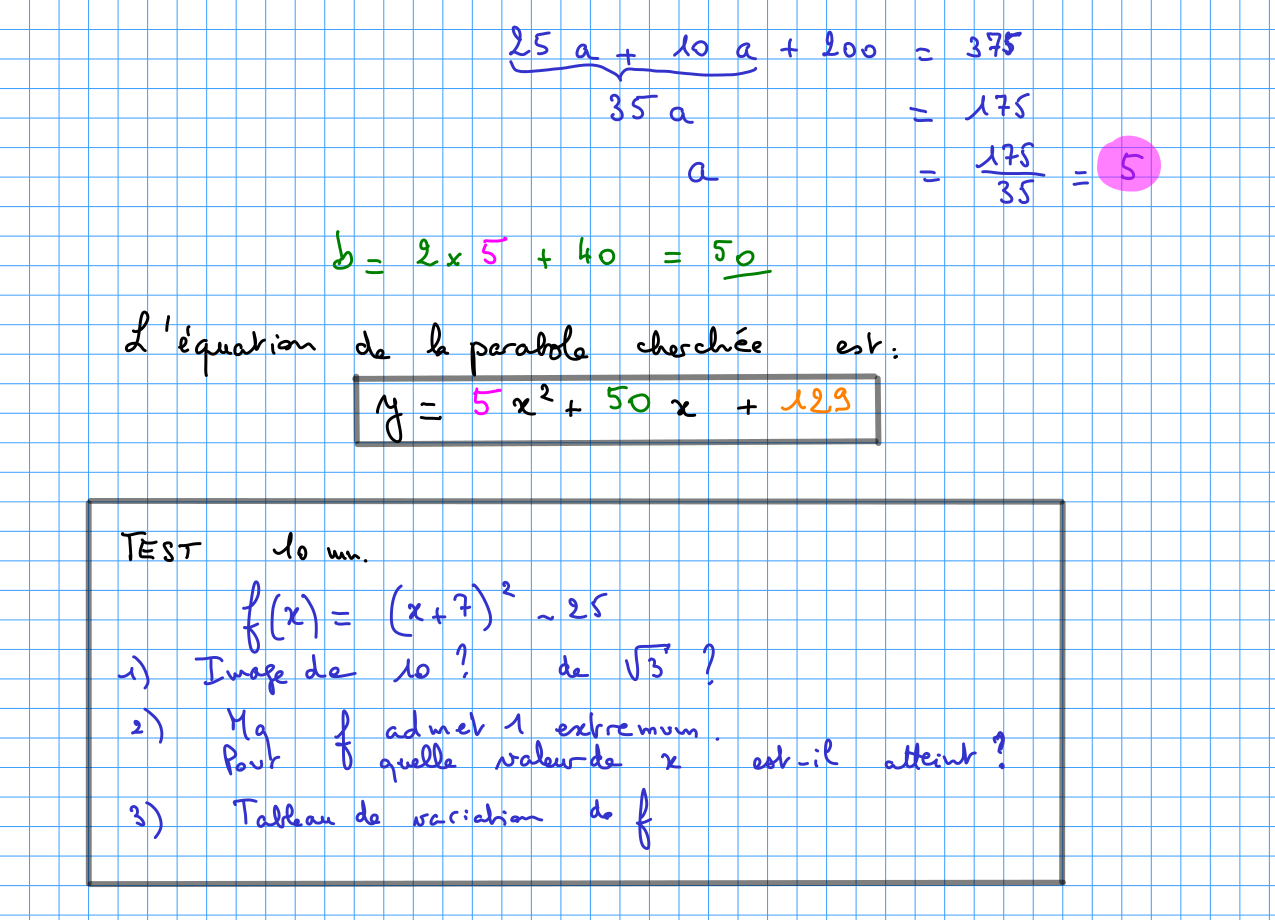 25 a + 10 a + 200 = 375
35 a = 175
a = 175/35 = 5
b = 2 x 5 + 40 = 50
L'équation de la parabole cherchée est :
y = 5 x² + 50 x + 129
TEST 10 mn.
f(x) = (x+7)² - 25
1) Image de 10 ? de √3 ?
2) Mq f admet 1 extremum.
Pour quelle valeur de x est-il atteint ?
3) Tableau de variation de f